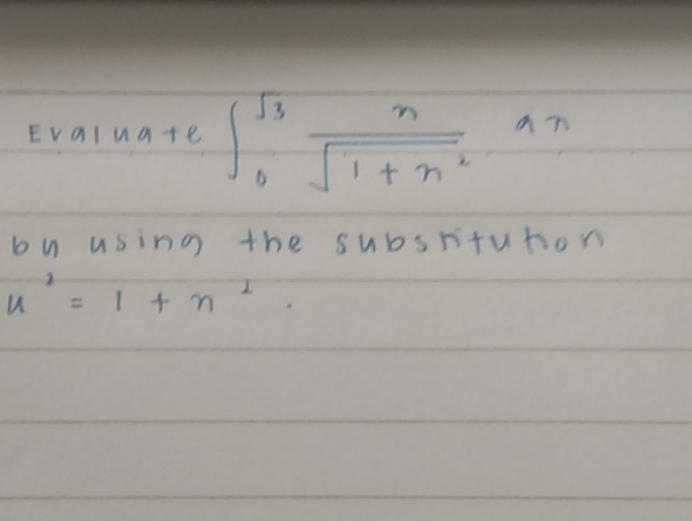 Evaluate ∫₀^√3 x/√(1 + x²) dx
by using the substitution
u² = 1 + x².